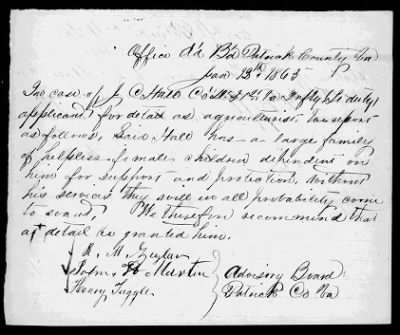 Office Ad Bd Patrick County Va
Jan 13th 1865
In case of J. C. Hall Co 51st Va Infty Lt duty
applicant for detail as agriculturist we report
as follows, Said Hall has a large family
of helpless female children dependent on
him for support and protection, without
his services they will in all probability come
to want, We therefore recommend that
a detail be granted him.
R. M. Taylor
Martin
Henry Tuggle
Advisory Board
Patrick Co Va